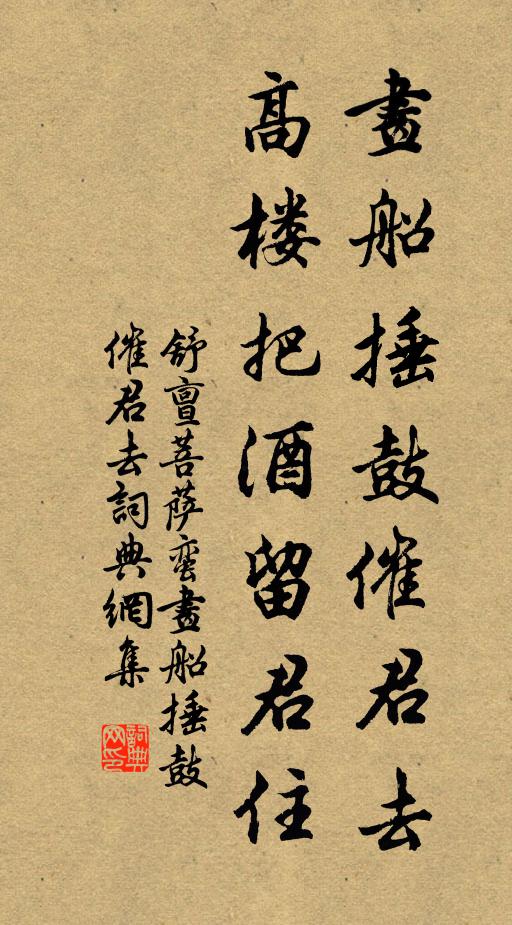 畫船捶鼓催君去
高楼把酒留君住
舒亶菩萨蛮畫船捶鼓
催君去詞典網集
詞典网印